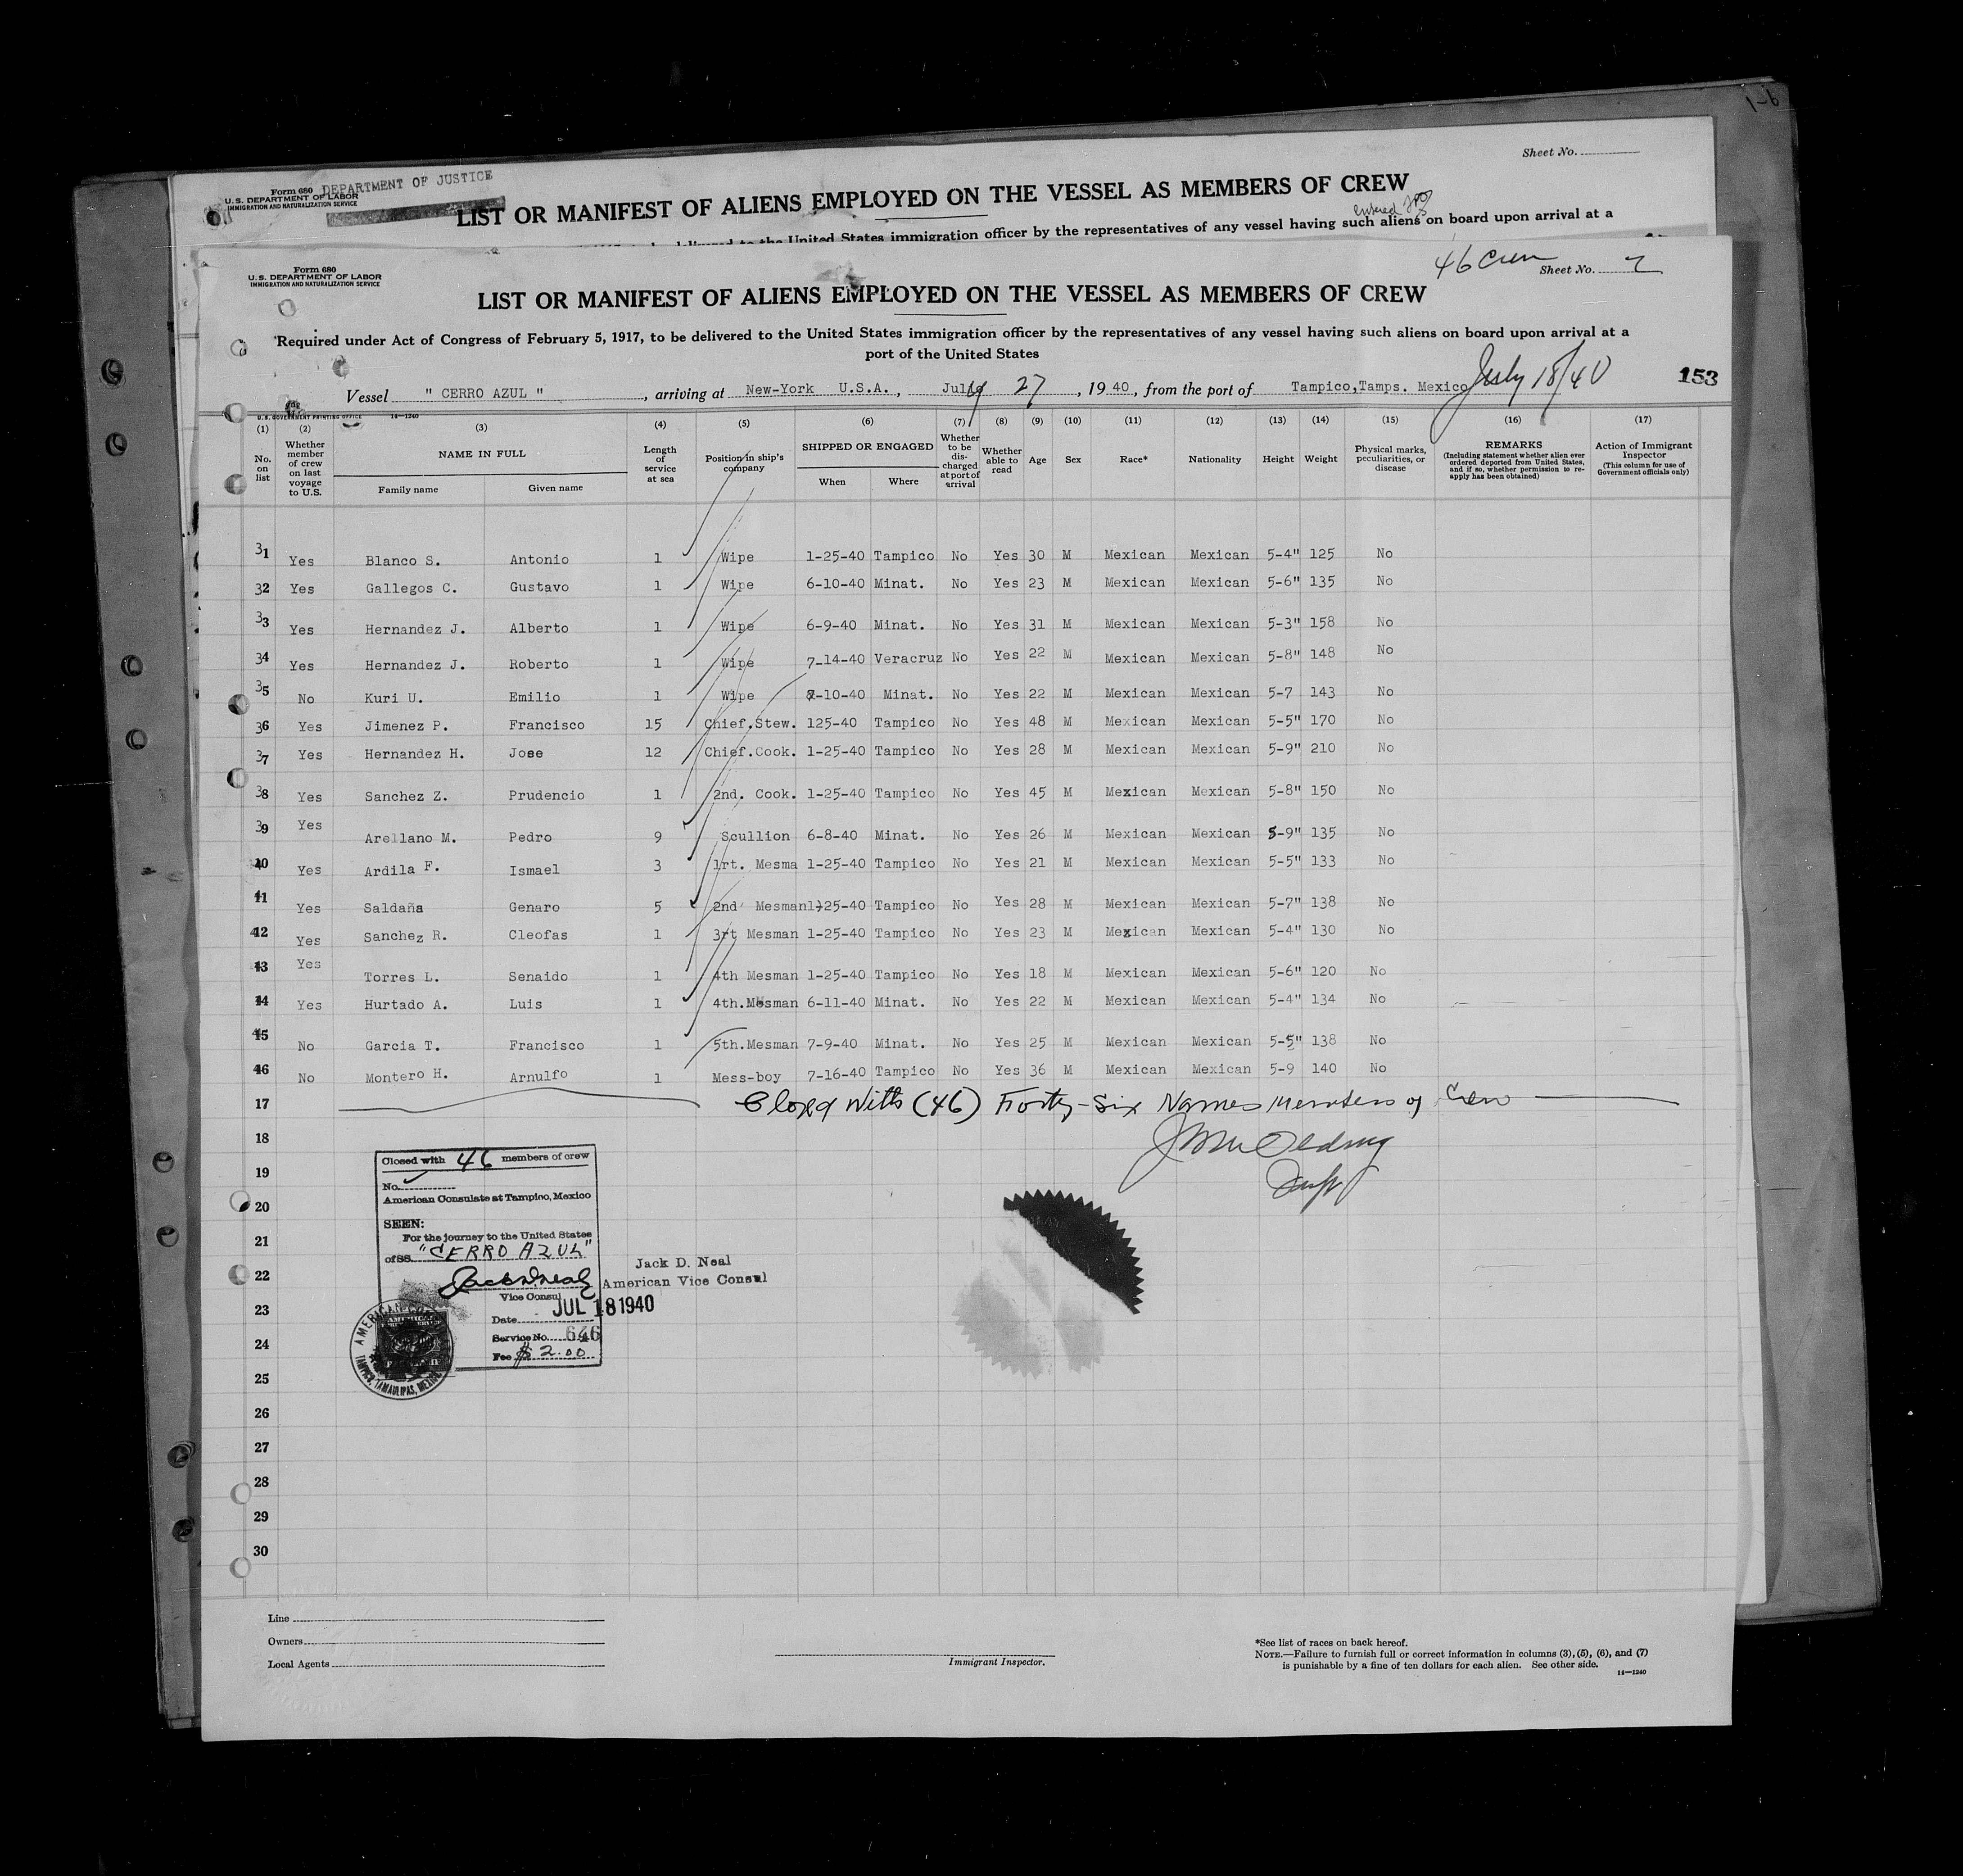 1-6
Sheet No.
Form 680
DEPARTMENT OF JUSTICE
U. S. DEPARTMENT OF LABOR
IMMIGRATION AND NATURALIZATION SERVICE
LIST OR MANIFEST OF ALIENS EMPLOYED ON THE VESSEL AS MEMBERS OF CREW
entered
delivered to the United States immigration officer by the representatives of any vessel having such aliens on board upon arrival at a
Form 680
U. S. DEPARTMENT OF LABOR
IMMIGRATION AND NATURALIZATION SERVICE
46 Crew
Sheet No. 2
LIST OR MANIFEST OF ALIENS EMPLOYED ON THE VESSEL AS MEMBERS OF CREW
Required under Act of Congress of February 5, 1917, to be delivered to the United States immigration officer by the representatives of any vessel having such aliens on board upon arrival at a
port of the United States
Vessel " CERRO AZUL ", arriving at New-York U.S.A., July 27, 1940, from the port of Tampico,Tamps. Mexico July 18/40 153
U. S. GOVERNMENT PRINTING OFFICE 14—1240
(1) (2) (3) (4) (5) (6) (7) (8) (9) (10) (11) (12) (13) (14) (15) (16) (17)
No. on list
Whether member of crew on last voyage to U.S.
NAME IN FULL
Family name Given name
Length of service at sea
Position in ship's company
SHIPPED OR ENGAGED
When Where
Whether to be discharged at port of arrival
Whether able to read
Age
Sex
Race*
Nationality
Height
Weight
Physical marks, peculiarities, or disease
REMARKS
(Including statement whether alien ever ordered deported from United States, and if so, whether permission to reapply has been obtained)
Action of Immigrant Inspector
(This column for use of Government officials only)
31 Yes Blanco S. Antonio 1 Wipe 1-25-40 Tampico No Yes 30 M Mexican Mexican 5-4" 125 No
32 Yes Gallegos C. Gustavo 1 Wipe 6-10-40 Minat. No Yes 23 M Mexican Mexican 5-6" 135 No
33 Yes Hernandez J. Alberto 1 Wipe 6-9-40 Minat. No Yes 31 M Mexican Mexican 5-3" 158 No
34 Yes Hernandez J. Roberto 1 Wipe 7-14-40 Veracruz No Yes 22 M Mexican Mexican 5-8" 148 No
35 No Kuri U. Emilio 1 Wipe 7-10-40 Minat. No Yes 22 M Mexican Mexican 5-7 143 No
36 Yes Jimenez P. Francisco 15 Chief.Stew. 125-40 Tampico No Yes 48 M Mexican Mexican 5-5" 170 No
37 Yes Hernandez H. Jose 12 Chief.Cook. 1-25-40 Tampico No Yes 28 M Mexican Mexican 5-9" 210 No
38 Yes Sanchez Z. Prudencio 1 2nd. Cook. 1-25-40 Tampico No Yes 45 M Mexican Mexican 5-8" 150 No
39 Yes Arellano M. Pedro 9 Scullion 6-8-40 Minat. No Yes 26 M Mexican Mexican 5-9" 135 No
40 Yes Ardila F. Ismael 3 1rt. Mesma 1-25-40 Tampico No Yes 21 M Mexican Mexican 5-5" 133 No
41 Yes Saldaña Genaro 5 2nd Mesman 1-25-40 Tampico No Yes 28 M Mexican Mexican 5-7" 138 No
42 Yes Sanchez R. Cleofas 1 3rt Mesman 1-25-40 Tampico No Yes 23 M Mexican Mexican 5-4" 130 No
43 Yes Torres L. Senaido 1 4th Mesman 1-25-40 Tampico No Yes 18 M Mexican Mexican 5-6" 120 No
44 Yes Hurtado A. Luis 1 4th.Mesman 6-11-40 Minat. No Yes 22 M Mexican Mexican 5-4" 134 No
45 No Garcia T. Francisco 1 5th.Mesman 7-9-40 Minat. No Yes 25 M Mexican Mexican 5-5" 138 No
46 No Montero H. Arnulfo 1 Mess-boy 7-16-40 Tampico No Yes 36 M Mexican Mexican 5-9 140 No
17 Closed With (46) Forty-Six Names Members of Crew
18
19
20
21
22
23
24
25
26
27
28
29
30
Closed with 46 members of crew
No.
American Consulate at Tampico, Mexico
SEEN:
For the journey to the United States
of SS. "CERRO AZUL"
Jack D. Neal
Jack D. Neal
American Vice Consul
Vice Consul
Date JUL 18 1940
Service No. 646
Fee $ 2.00
AMERICAN
TAMPICO, TAMAULIPAS, MEXICO
Line
Owners
Local Agents
Immigrant Inspector.
*See list of races on back hereof.
NOTE.—Failure to furnish full or correct information in columns (3), (5), (6), and (7)
is punishable by a fine of ten dollars for each alien. See other side.
14—1240